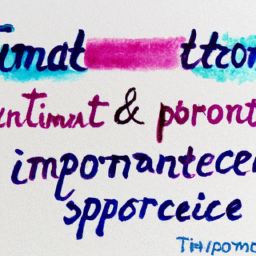 tumat ttron
untimut & poront
imporrantecer
spporceice
Tiripomo